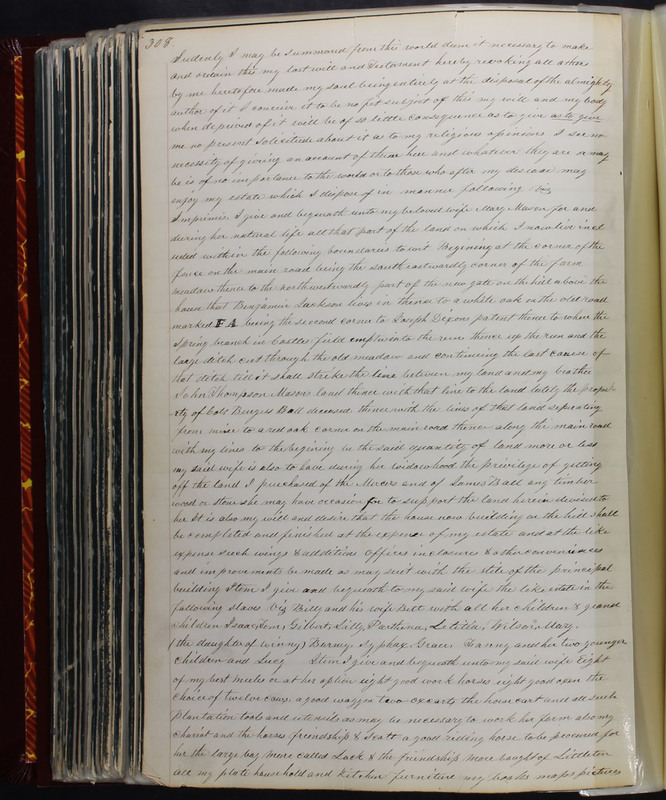 308
Sudenly I may be summond from this world deem it necessary to make
and ordain this my last will and Testament hereby revoking all others
by me heretofore made my soul being entirely at the disposal of the almighty
author of it I conceive it to be no fit subject of this my will and my body
when deprived of it will be of so little consequence as to give as to give
me no present solicitude about it as to my religious opinions I see no
necessity of giving an account of them here and whatever they are or may
be is of no importance to the world or to those who after my decease may
enjoy my estate which I dispose of in manner following Viz
Imprimis I give and beqeath unto my beloved wife Mary Mason for and
during her natural life all that part of the land on which I now live incl
uded within the following boundaries to wit Begining at the corner of the
fence on the main road being the south eastwardly corner of the farm
meadow thence to the north westwardly part of the new gate on the hill above the
house that Benjamin Jackson lives in thence to a white oak on the old road
marked FA being the second corner to Joseph Dixons patent thence to where the
Spring branch in Castle field empts into the run thence up the run and the
large ditch cut through the old meadow and continuing the last course of
that ditch till it shall strike the line between my land and my brother
John Thompson Masons land thence with that line to the land lately the prope-
rty of Colo Burges Ball deceased thence with the lines of that land seperating
from mine to a red oak corner on the main road thence along the main road
with my lines to the begining be the said quantity of land more or less
my said wife is also to have during her widowhood the privilege of getting
off the land I purchased of the Mercers and of James Ball any timber
wood or stone she may have occasion for to support the land herein devised to
her It is also my will and desire that the house now building on the hill shall
be completed and finished at the expense of my estate and at the like
expense such wings & additions offices inclosures & other conveniences
and improvements be made as may suit with the stile of the principal
building Item I give and bequeath to my said wife the like estate in the
following slaves Viz Billy and his wife Bett with all her children & grand
children Isaac, Gilbert, Lilly, Parthena, Letitia, Wilson, Mary.
(the daughter of winny) Barney, Syphax, Grace, Fanny and her two younger
children and Lucy Item I give and bequeath unto my said wife Eight
of my best mules or at her option eight good work horses eight good oxen the
choice of twelve cows, a good waggon two oxcarts the horse cart and all such
plantation tools and utensils as may be necessary to work her farm also my
chariot and the horses friendship & Scott a good riding horse to be procured for
her the large bay mare called Lack & the friendship mare bought of Littleton
all my plate household and kitchen furniture my books maps pictures